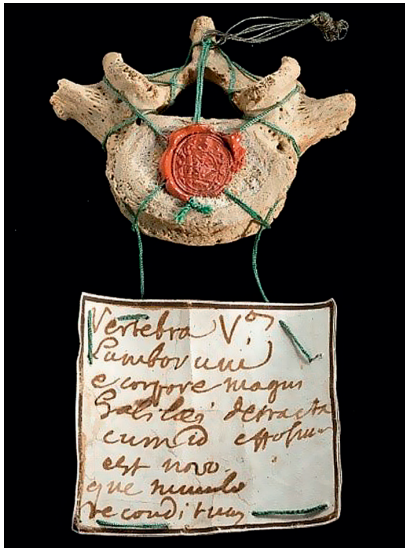 Vertebra Vᵗᵃ
Lumborum
e corpore magni
Galilei detracta
cum id effossum
est novo
que tumulo
reconditum